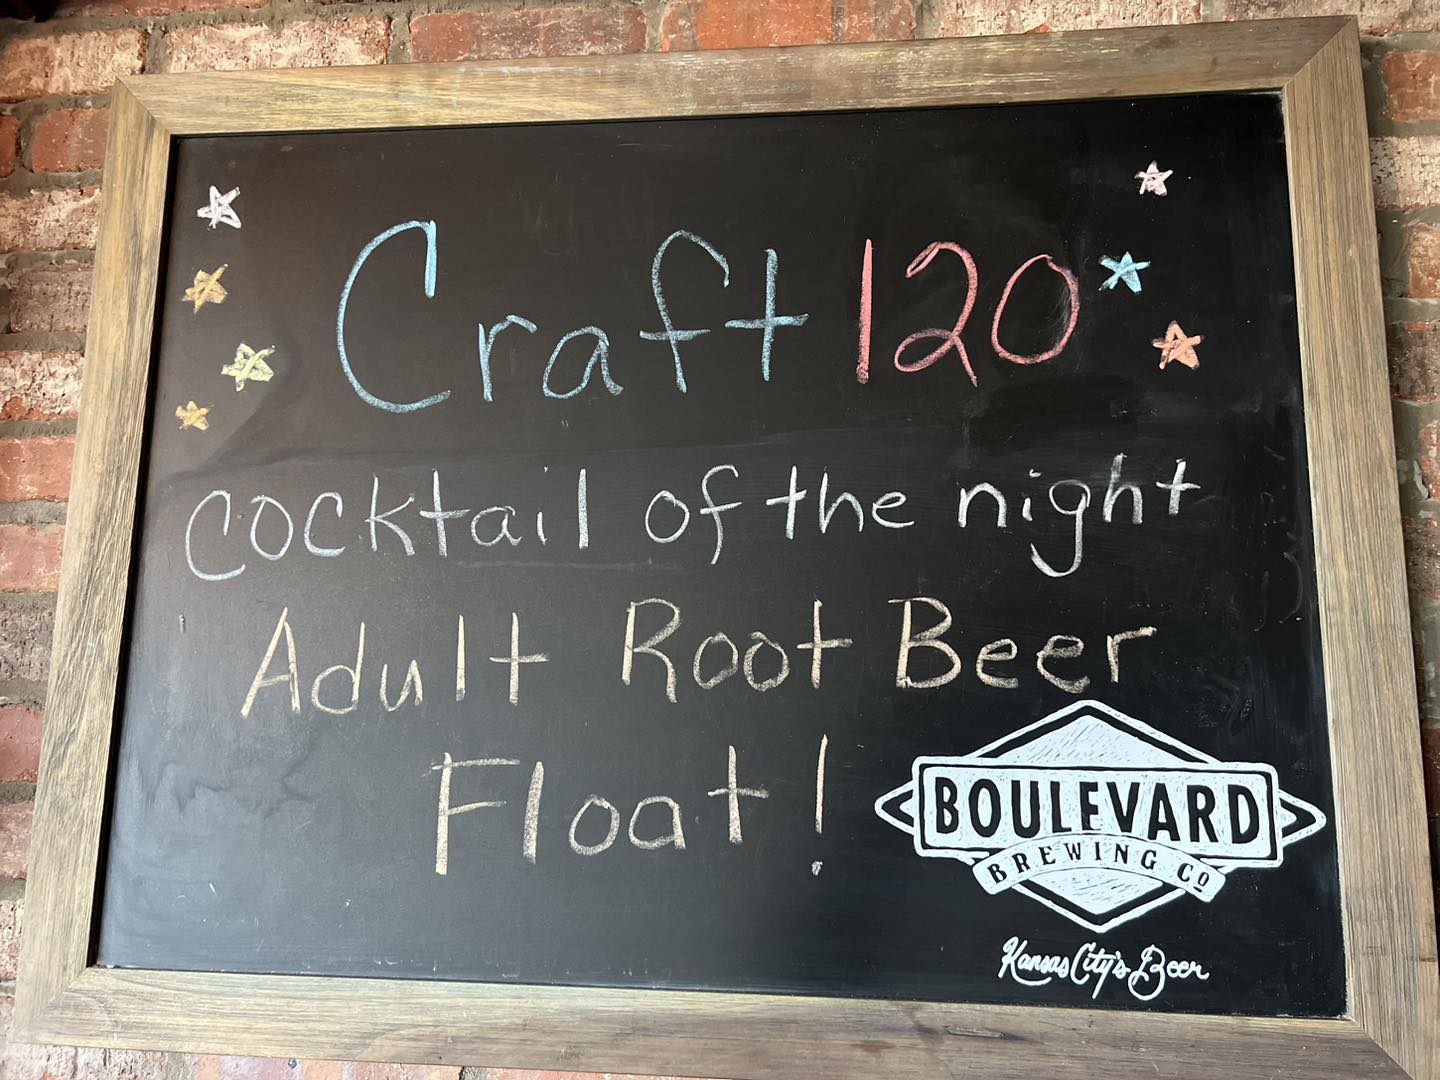 Craft 120
cocktail of the night
Adult Root Beer
Float!
BOULEVARD
BREWING CO
Kansas City's Beer